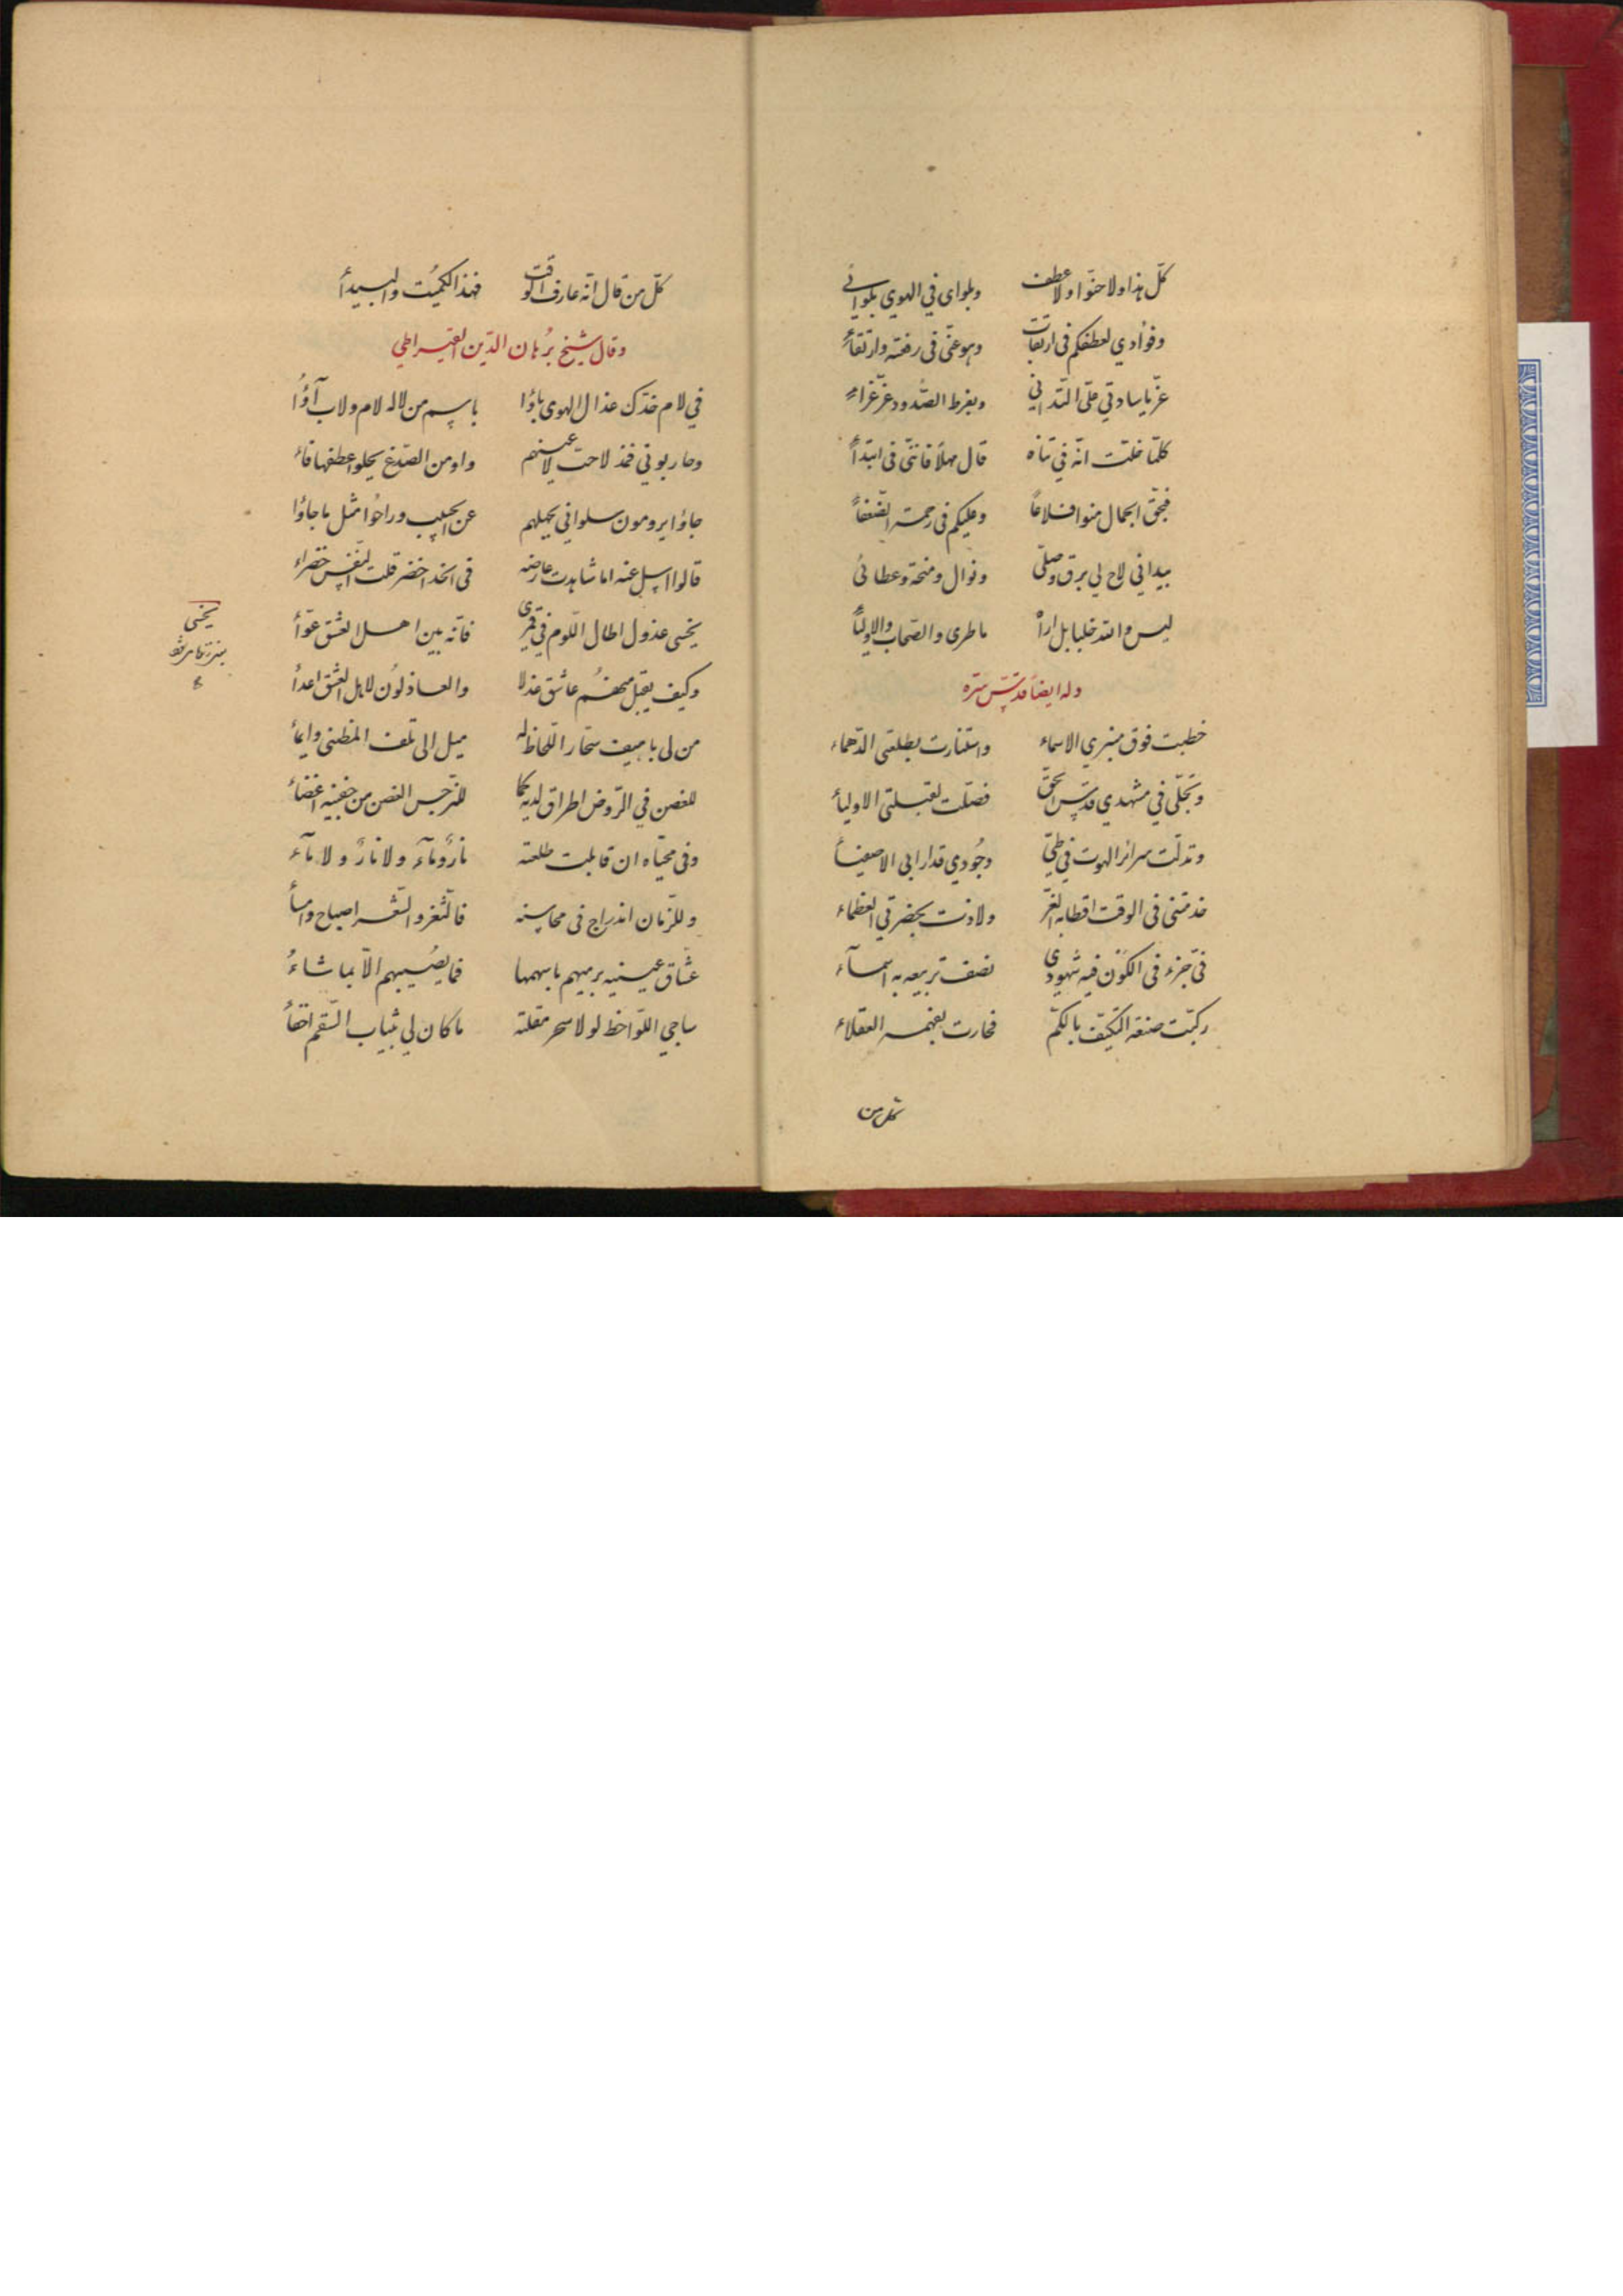 كلّ هذا ولا حنوّا ولا عطف وبلواى في الهوي بلوائي
وفؤادي لعطفكم فى ارتقات وهو عنّى فى رفعة وارتقاء
عزّ يا سادتي عليّ التدانى وبفرط الصّدود عزّ عزاء
كلّما خلت انّه في تناه قال مهلاً فانّنى فى ابتدأ
فبحقّ الجمال منوا وعليكم فى رحمة الضّعفأ
بيد انى لاح لي برق وصلى ونوال ومنحة وعطائى
ليس والله خلبا بل اراه ما طرى والصّحاب والاوليا
وله ايضاً قدّس سرّه
خطبت فوق منبري الاسماء واستنارت بطلعتى الدّهماء
وتجلّى في مشهدي قدس الحقّ فصلّت لقبلتى الاوليأ
وتدلّت سرائر الهوت في طيّ وجُودي قدار ابى الاصفيأ
خدمتنى فى الوقت اقطابه الغرّ ولاذت بحضرتي العظماء
فىّ جزء فى الكون فيه شهودي نصف تربيعه به اسمآء
ركبّت صنعة التكيّف بالكمّ فحارت بفهمه العقلاء
كل من
كلّ من قال انّه عارف الوقت فهذا الكميُت والبيدأ
وقال الشيخ برُهان الدّين القيراطي
في لام خدّك عذال الهوى باؤا باسم من لاله لام ولا ب آؤُا
وحاربوني فمذ لاحت لاعينهم واو من الصّدغ يحلو اعطفها فاء
جاؤا يرومون سلواني بجهلهم عن الحبيب وراحُوا مثل ما جاؤا
قالوا اسل عنه اما شاهدت عارضه فى الخدّ اخضر قلت النّفس خضراء
يخشى عذول اطال اللّوم في قمري فانّه بين اهل العشق عوّأ
وكيف يقبل منهُم عاشق عذلا والعاذلوُن لاهل العشق اعدأ
من لى باهيف سحّار اللّحاظ له ميل الى تلف المضنى وايمأ
للغصن في الرّوض اطراق لديه كما للنّرجس الغض من جفنيه اغضاء
وفى محيّاه ان قابلت طلعته نارٌ ومآءٌ ولا نارٌ ولا مآء
وللزّمان اندراج فى محاسنه فالثّغر والشّعر اصباح وامسأ
عشّاق عينيه يرميهم باسهمها فما يُصيبهم الّا بما شاءُ
ساجي اللّواحظ لولا سحر مقلته ما كان لي بثياب السّقم اخفأ
يخشى